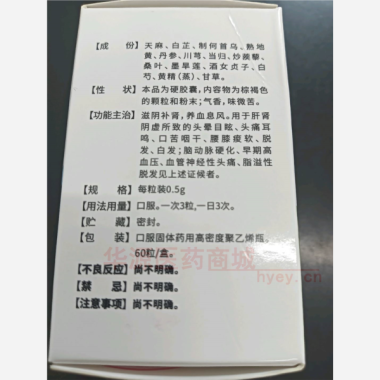 【成　份】天麻、白芷、制何首乌、熟地
黄、丹参、川芎、当归、炒蒺藜、
桑叶、墨旱莲、酒女贞子、白
芍、黄精(蒸)、甘草。
【性　状】本品为硬胶囊,内容物为棕褐色
的颗粒和粉末;气香,味微苦。
【功能主治】滋阴补肾,养血息风。用于肝肾
阴虚所致的头晕目眩、头痛耳
鸣、口苦咽干、腰膝痠软、脱
发、白发;脑动脉硬化、早期高
血压、血管神经性头痛、脂溢性
脱发见上述证候者。
【规　格】每粒装0.5g
【用法用量】口服。一次3粒,一日3次。
【贮　藏】密封。
【包　装】口服固体药用高密度聚乙烯瓶。
60粒/盒。
【不良反应】尚不明确。
【禁　忌】尚不明确。
【注意事项】尚不明确。
医药商城